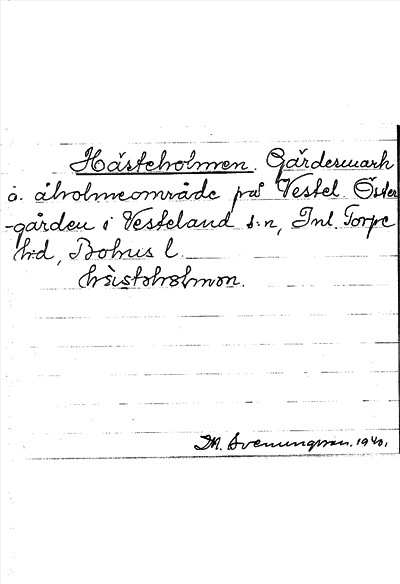 Hästeholmen. Gärdesmark
o. åholmeområde på Vestel. Öster
-gården i Vesteland s:n, Inl. Torpe
h:d, Bohus l.
hästəhəlmən.
M. Svenungsson. 1940.